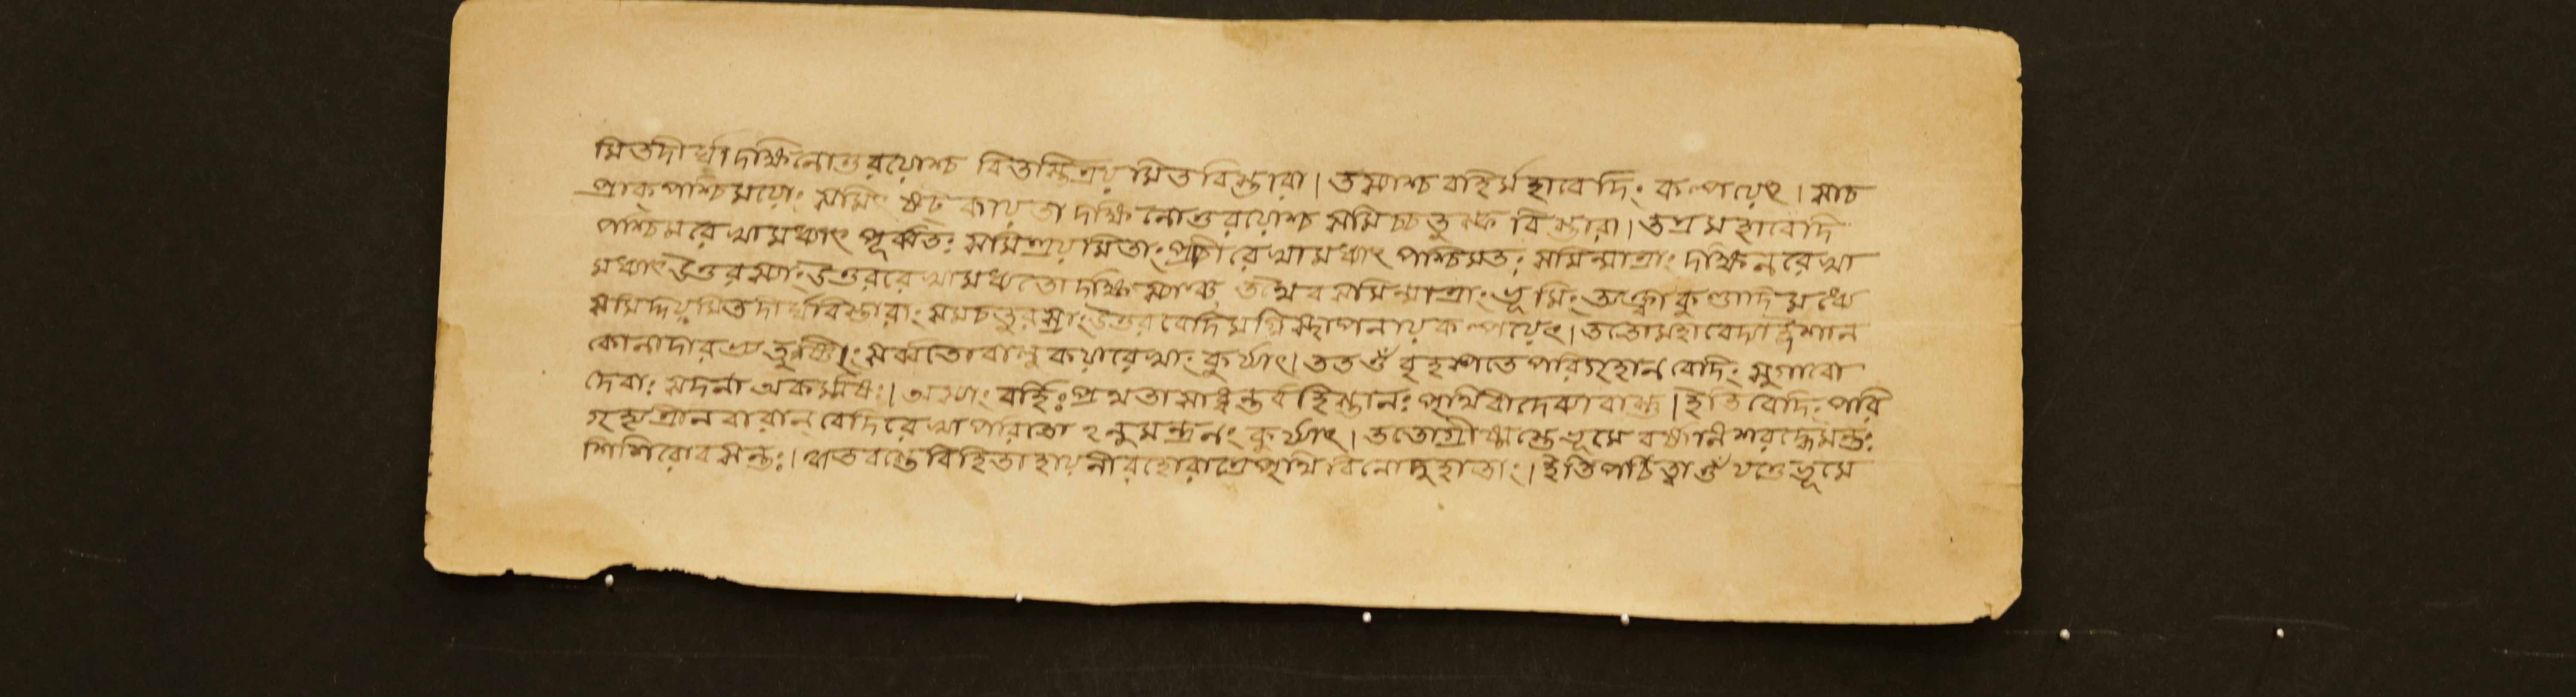 মিতদীর্ঘা দক্ষিনোত্তরয়োশ্চ বিতস্তিত্রয়মিতবিস্তারা। তস্যাশ্চ বহির্মহাবেদিং কল্পয়েৎ। সাচ
প্রাক্পশ্চিময়োঃ সমিৎ ষট্কায়তা দক্ষিনোত্তরয়োশ্চ সমিচ্চতুষ্ক বিস্তারা। তত্র মহাবেদি
পশ্চিমরেখামধ্যাৎ পূর্ব্বতঃ সমিত্ত্রয়মিতাং প্রাচীরেখামধ্যাৎ পশ্চিমতঃ সমিন্মাত্রাং দক্ষিনরেখা
মধ্যাৎ উত্তরস্যাং উত্তররেখামধ্যতো দক্ষিনস্যাঞ্চ তথৈব সমিন্মাত্রাং ভূমিং ত্যক্ত্বা কুণ্ডাদিমধ্যে
সমিদ্দিয়মিতদীর্ঘবিস্তারাং সমচতুরস্রাং উত্তরবেদিমগ্নিস্থাপনায় কল্পয়েৎ। ততো মহাবেদ্যা ঈশান
কোনাদারভ্য সর্ব্বতো বালুকয়া রেখাং কুর্য্যাৎ। তত ওঁ বৃহস্পতে পরিগৃহান বেদিং সুগাবো
দেবাঃ সদনা অকর্ম্ম। অস্যাং বর্হিঃ প্রথতা সাধ্বন্তর্বহিস্রানঃ পৃথিবীদেব্যাবাস্তু। ইতি বেদিং পরি
গৃহ্য ত্রীন বারান্ বেদিরেখাপরি তো ঽনুমন্ত্রনং কুর্য্যাৎ। ততো গ্রীষ্মস্তে ভূমে বর্ষানি শরদ্ধেমন্তঃ
শিশিরো বসন্তঃ। ঋতবস্তে বিহিতা হায়নীরহোরাত্রে পৃথিবি নো দুহাতাং। ইতি পঠিত্বা ওঁ যত্তে ভূমে